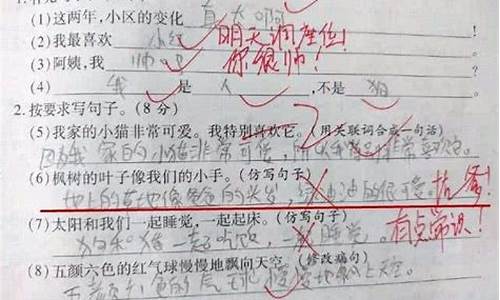 (1)这两年,小区的变化 真大啊
(2)我最喜欢 小红 明天调座位!
(3)阿姨,我 帅吧 你很帅!
(4) 我 是 人 ,不是 狗
2.按要求写句子。(8分)
(5)我家的小猫非常可爱。我特别喜欢它。(用关联词合成一句话)
因为我家的小猫非常可爱,所以我非常喜欢它。
(6)枫树的叶子像我们的小手。(仿写句子)
地上的草地像爸爸的头发,绿油油的很可爱。
(7)太阳和我们一起睡觉,一起起床。(仿写句子)
一起吃饭, 睡觉。 有点常识!
(8)五颜六色的红气球慢慢地飘向天空。(修改病句)
五颜六色的气球慢慢地飘上天空。